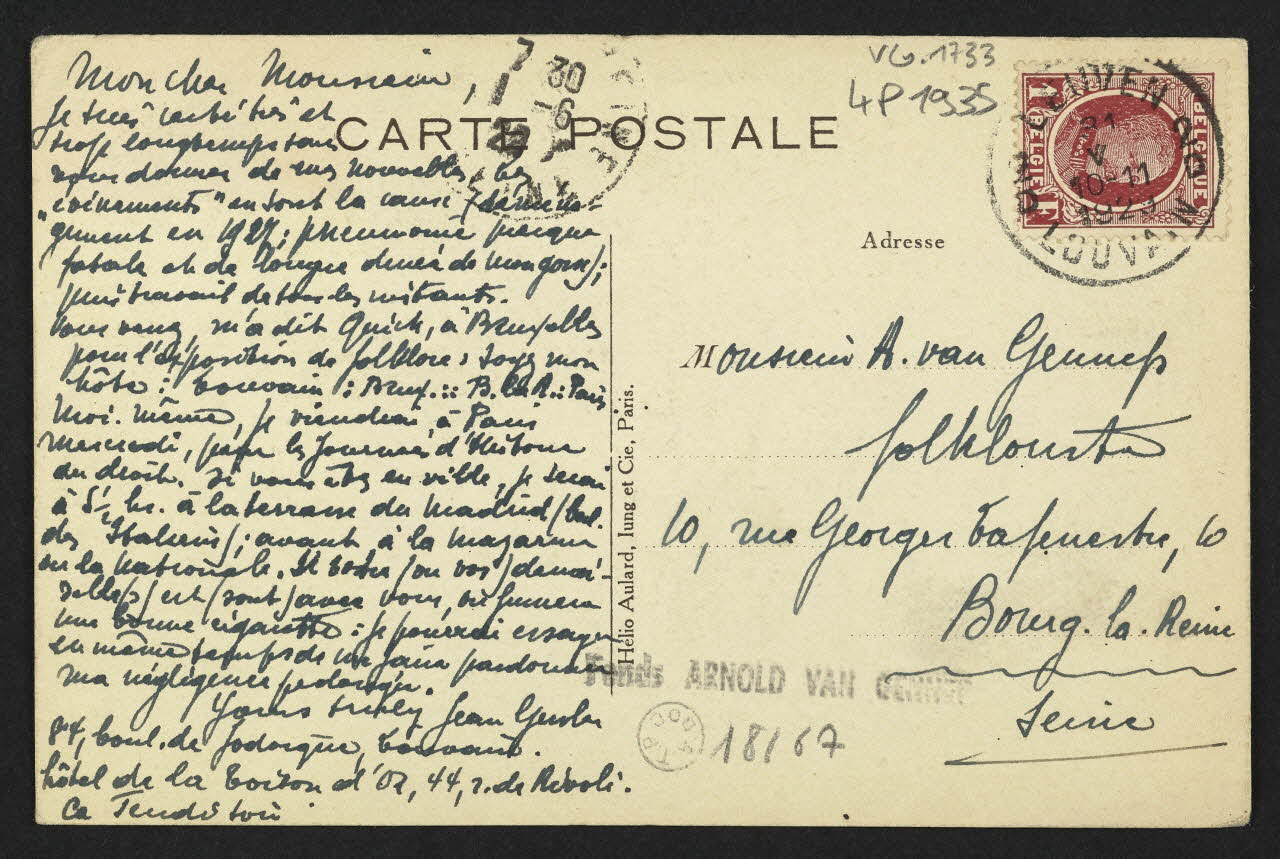 VG. 1733
4P 1935
CARTE POSTALE
7 30
1-6
LEUVEN
31
10-11
LOUVAIN
BELGIQUE
BELGIË
Adresse
Mon cher Monsieur,
Je suis resté très et
trop longtemps sans
vous donner de mes nouvelles. Les
"événements" en sont la cause (déména-
gement en 1927; pneumonie presque
fatale et de longue durée de mon gosse);
puis travail de tous les instants.
Vous venez, m'a dit Quick, à Bruxelles
pour l'exposition de folklore: soyez mon
hôte: Louvain: Brux. :: B. la R. :: Paris
Moi-même, je viendrai à Paris
mercredi, pour les Journées d'Histoire
du droit. Si vous êtes en ville, je serai
à 5 hs. à la terrasse du Madrid (boul.
des Italiens); avant à la Mazarine
ou la Nationale. Si votre (ou vos) demoi-
selle(s) est (sont) avec vous, on fumera
une bonne cigarette: je pourrai essayer
en même temps de me faire pardonner
ma négligence
Yours truly Jean
84, boul. de Jodoigne, Louvain.
hôtel de la Toison d'Or, 44, r. de Rivoli.
Monsieur A. van Gennep
folkloriste
10, rue Georges Lafenestre, 10
Bourg-la-Reine
Seine
Hélio Aulard, Iung et Cie, Paris.
Fonds ARNOLD VAN GENNEP
18/67